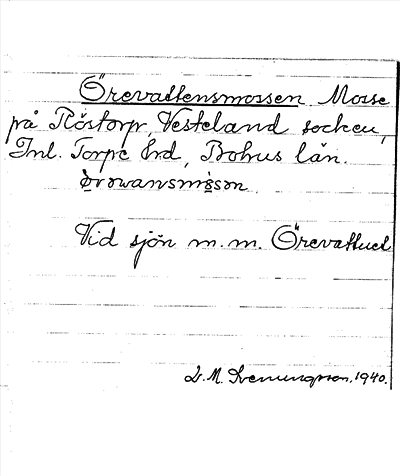 Örevattensmossen Mosse
på Röstorp, Västerland socken,
Inl. Torpe hrd, Bohus län.

Vid sjön m.m. Örevattnet
D. M. Svenungsson. 1940.